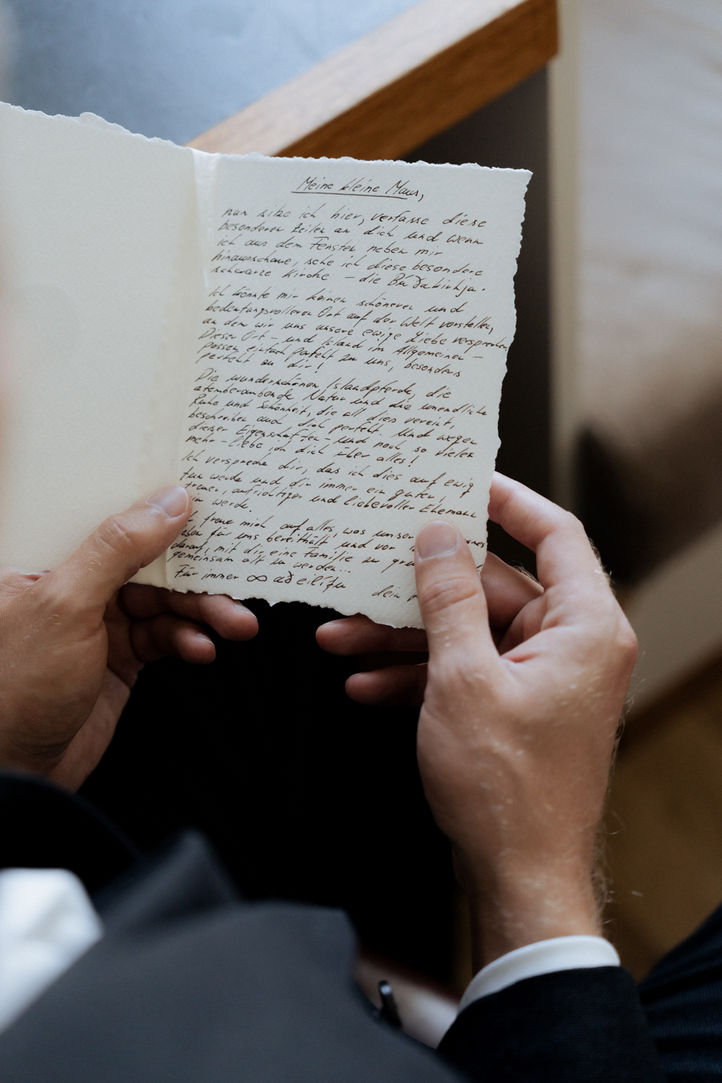 Meine kleine Maus,
nun sitze ich hier, verfasse diese
besonderen Zeilen an dich und wenn
ich aus dem Fenster neben mir
hinausschaue, sehe ich diese besondere
schwarze Kirche – die Búðakirkja.
Ich könnte mir keinen schöneren und
bedeutungsvolleren Ort auf der Welt vorstellen,
an dem wir uns unsere ewige Liebe versprechen.
Dieser Ort – und Island im Allgemeinen –
passen einfach perfekt zu uns, besonders
perfekt zu dir!
Die wunderschönen Islandpferde, die
atemberaubende Natur und die unendliche
Ruhe und Schönheit, die all dies vereint,
beschreiben auch dich perfekt. Und wegen
dieser Eigenschaften – und noch so vielen
mehr – liebe ich dich über alles!
Ich verspreche dir, das ich dies auf ewig
tun werde und dir immer ein guter,
treuer, aufrichtiger und liebevoller Ehemann
werde.
freue mich auf alles, was unser
für uns bereithält und vor
darauf, mit dir eine Familie zu
gemeinsam alt zu werden...
Für immer ∞ að eilífu dein